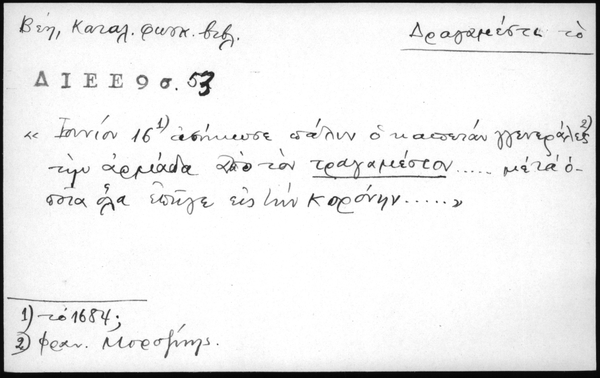 Βέη, Καταλ. φωσκ. βιβλ.
Δραγαμέστι τὸ
ΔΙΕΕ 9 σ. 53
« Ιουνίου 16 1) ἐσήκωσε πάλιν ὁ καπετάν γγενεράλες 2)
τὴν ἀρμάδα ἀπὸ τὸν τραγαμέστον..... μετά ὁ-
ποῖα ὅλα ἐπῆγε εἰς τὴν Κορόνην..... »
1) τὸ 1684;
2) Φραν. Μοροζίνης.